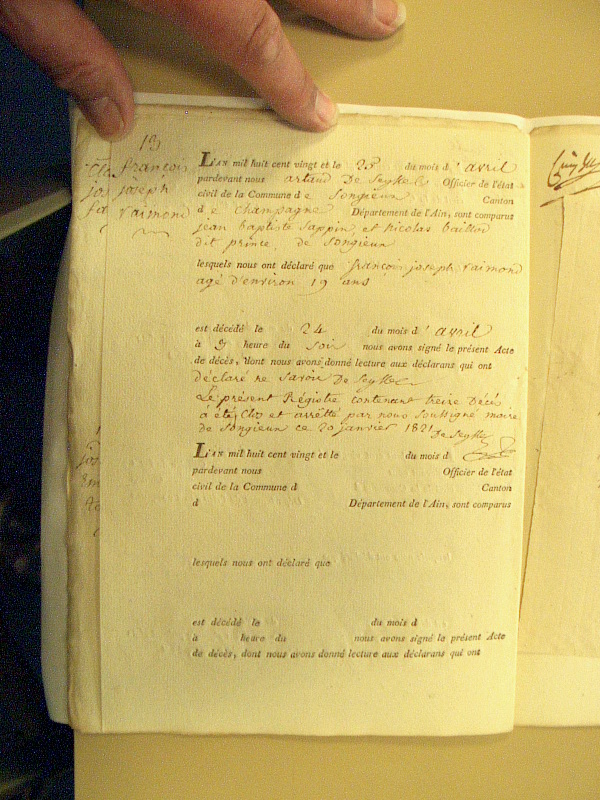 13
françois
joseph
raimond
L'AN mil huit cent vingt et le 25 du mois d' avril
pardevant nous artaud De Seyssel Officier de l'état
civil de la Commune d e Songieux Canton
d e Champagne Département de l'Ain, sont comparus
jean baptiste Sappin, et nicolas baillod
dit prince, de Songieux
lesquels nous ont déclaré que françois joseph raimond
agé d'environ 19 ans
est décédé le 24 du mois d' avril
à 9 heure du Soir nous avons signé le présent Acte
de décès, dont nous avons donné lecture aux déclarans qui ont
déclaré ne Savoir De Seyssel
Le présent Régistre contenant treize Décès
a été Clos et arrêtté par nous Soussigné maire
de Songieux ce 20 janvier 1821 De Seyssel
L'AN mil huit cent vingt et le du mois d
pardevant nous Officier de l'état
civil de la Commune d Canton
d Département de l'Ain, sont comparus
lesquels nous ont déclaré que
est décédé le du mois d
à heure du nous avons signé le présent Acte
de décès, dont nous avons donné lecture aux déclarans qui ont